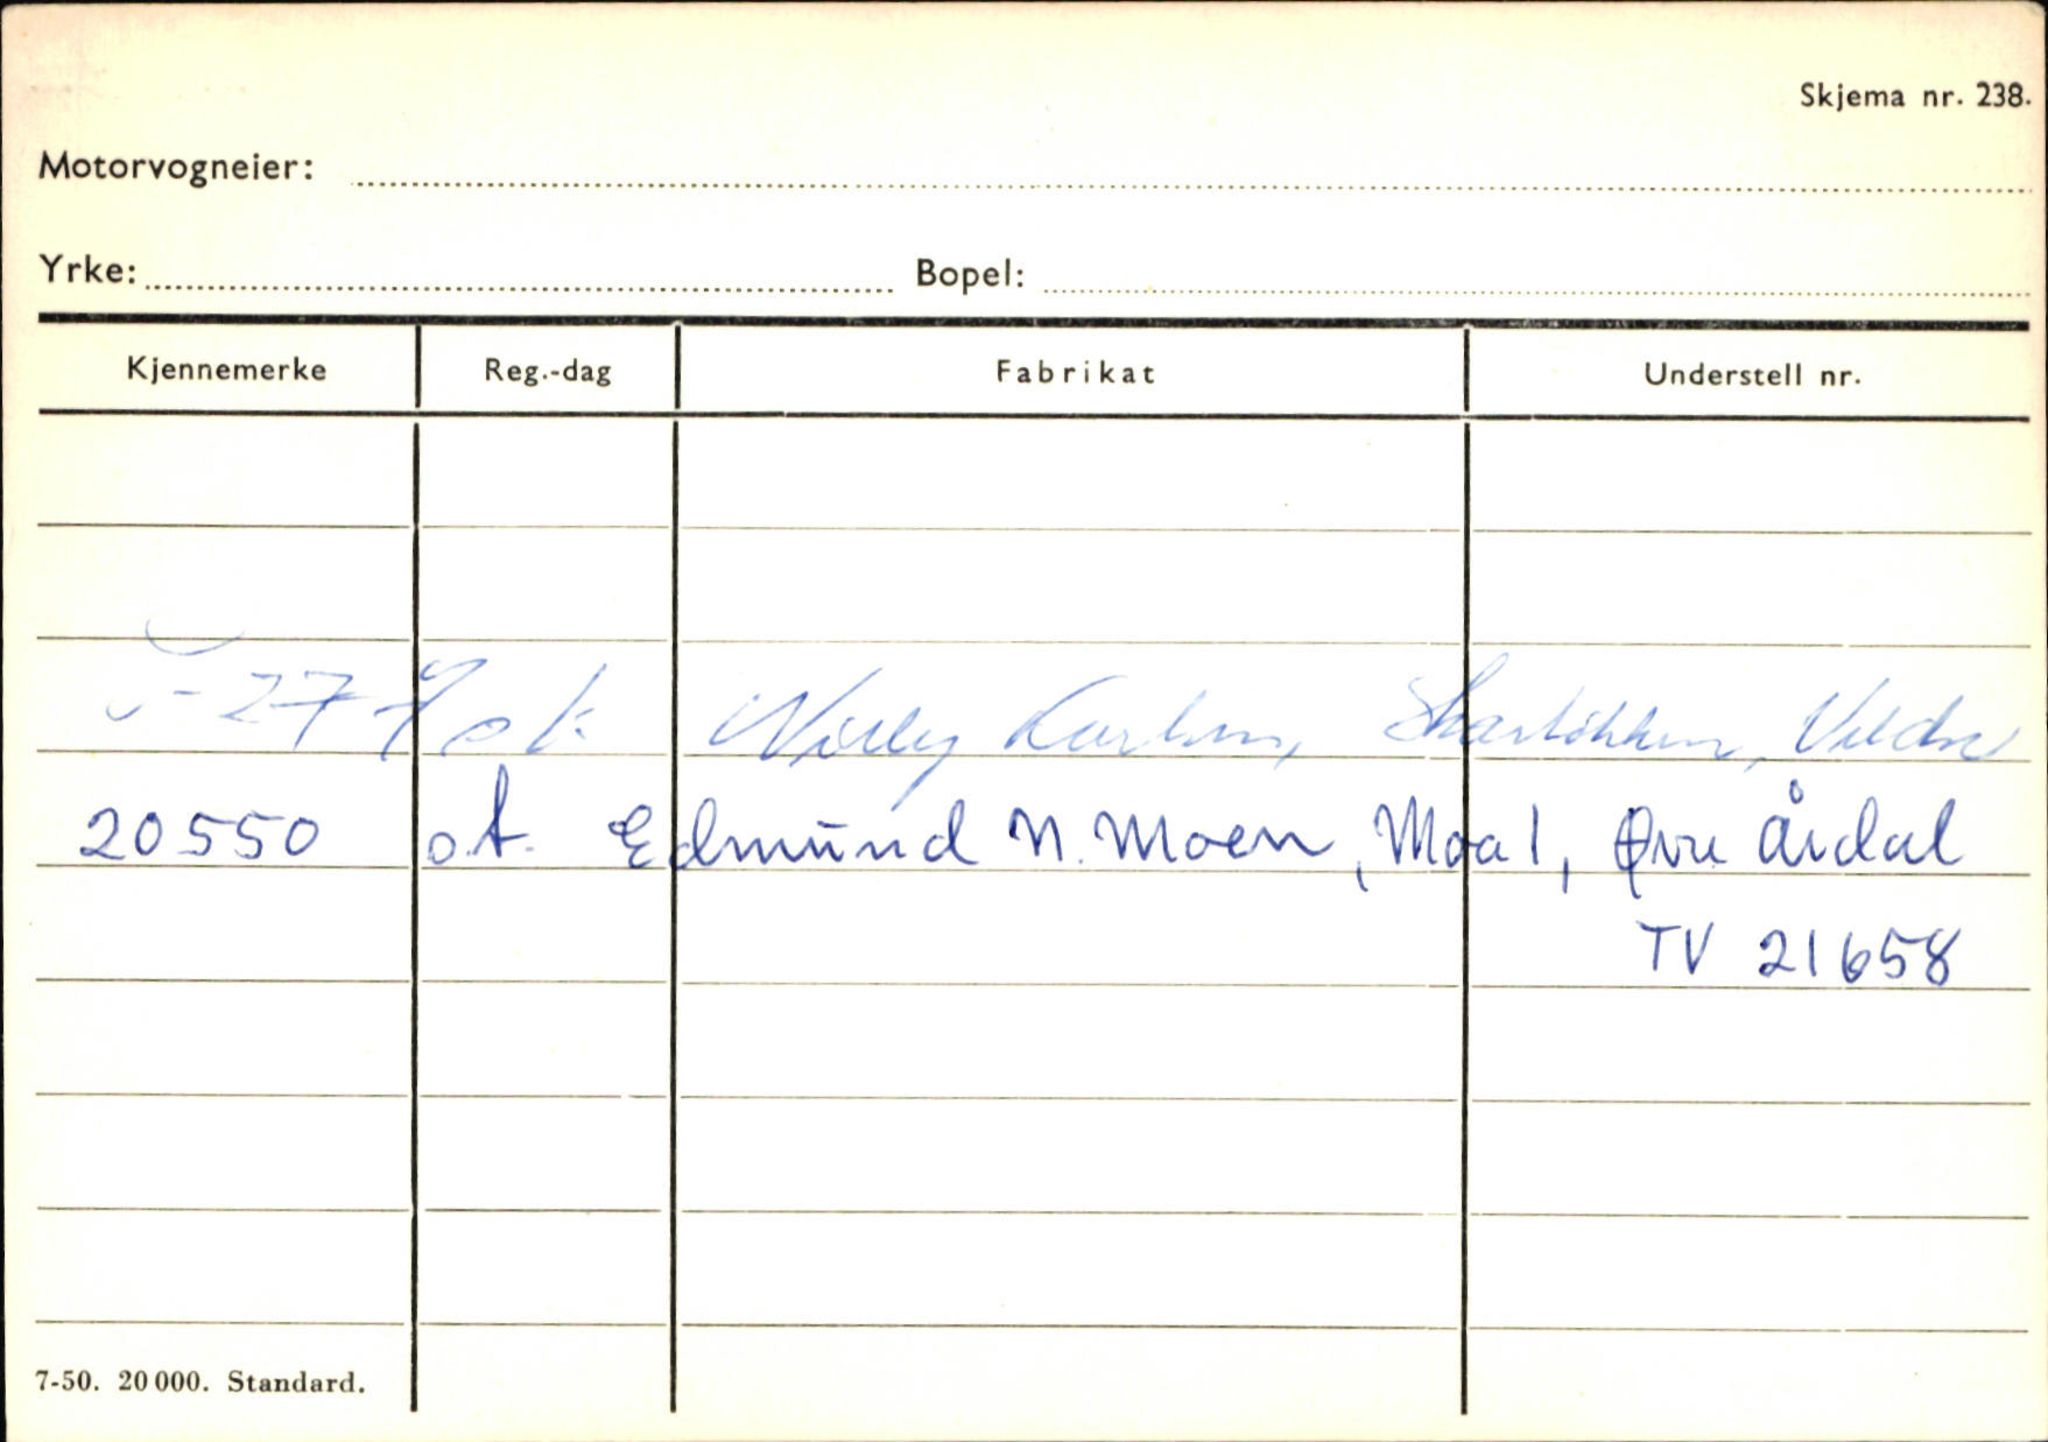 Skjema nr. 238.
Motorvogneier:
Yrke: Bopel:
Kjennemerke Reg.-dag Fabrikat Understell nr.
Willy
20550 o.t. Edmund N. Moen, Moa 1, Øvre Årdal
TV 21658
7-50. 20 000. Standard.